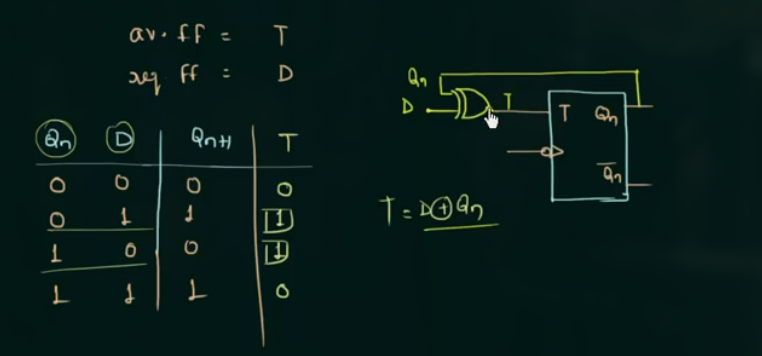 av. ff = T
req. ff = D
Qn D Qn+1 T
0 0 0 0
0 1 1 1
1 0 0 1
1 1 1 0
Qn
D
T
T Qn
Q̅n
T = D⊕Qn